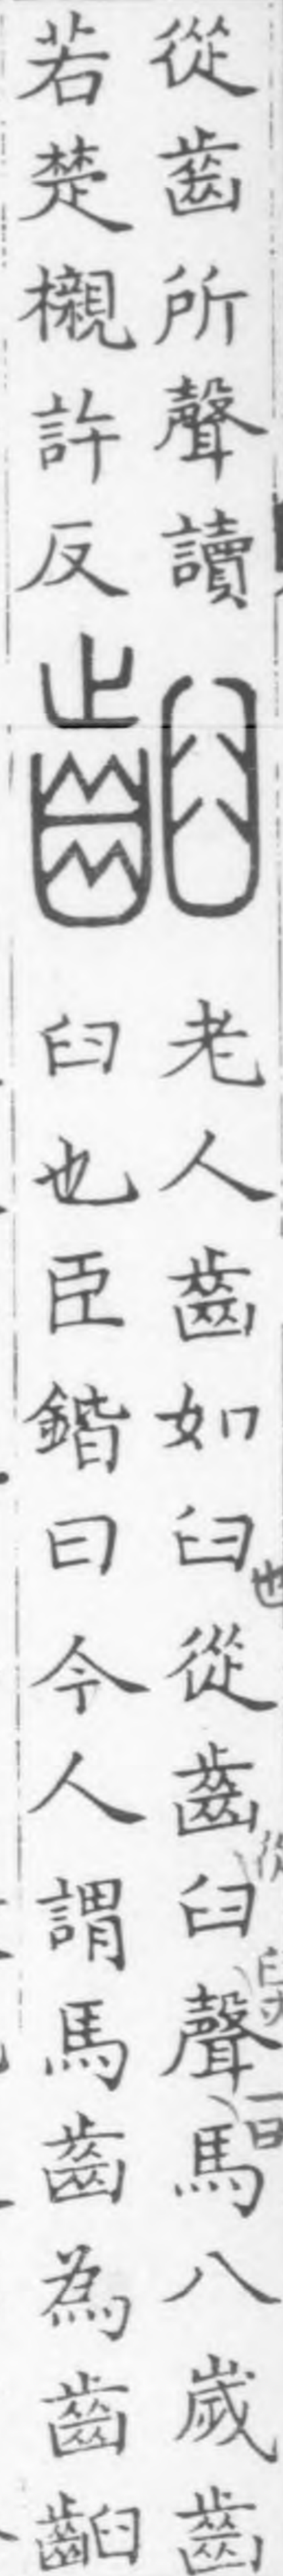 從齒所聲讀
若楚櫬許反
𪗬
老人齒如臼從齒臼聲馬八歲齒
臼也臣鍇曰今人謂馬齒為齒𪗬
也
從
一曰